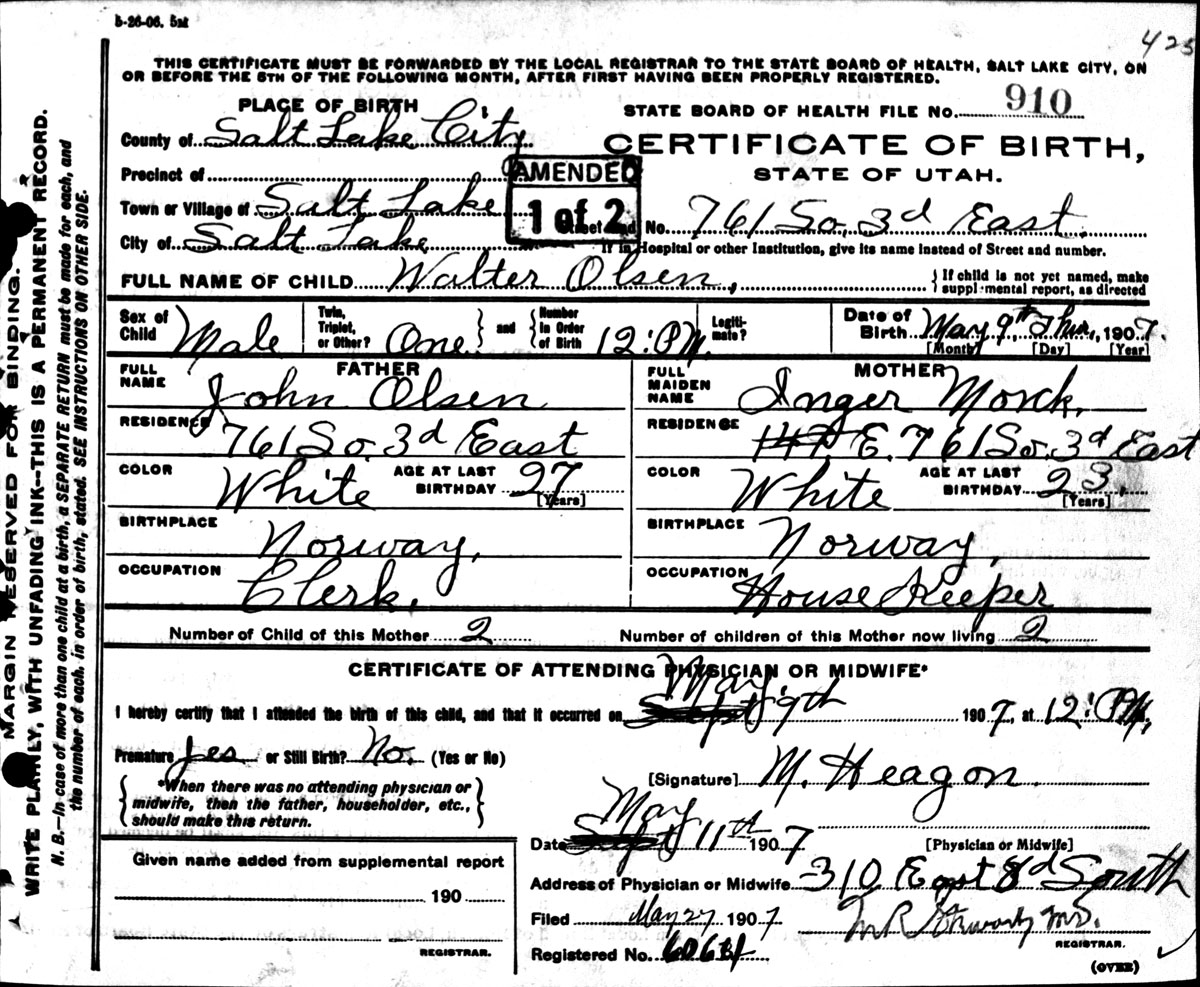 5-26-06. 5M
425
THIS CERTIFICATE MUST BE FORWARDED BY THE LOCAL REGISTRAR TO THE STATE BOARD OF HEALTH, SALT LAKE CITY, ON
OR BEFORE THE 5TH OF THE FOLLOWING MONTH, AFTER FIRST HAVING BEEN PROPERLY REGISTERED.
PLACE OF BIRTH
County of Salt Lake City
Precinct of
Town or Village of Salt Lake
City of Salt Lake
AMENDED
1 of 2
STATE BOARD OF HEALTH FILE No. 910
CERTIFICATE OF BIRTH,
STATE OF UTAH.
No. 761 So. 3d East.
If in Hospital or other Institution, give its name instead of Street and number.
FULL NAME OF CHILD Walter Olsen,
If child is not yet named, make
supplemental report, as directed
Sex of Child Male
Twin, Triplet, or Other? One
and
Number in Order of Birth 12:PM.
Legitimate?
Date of Birth May 9th Thur, 1907.
[Month] [Day] [Year]
FATHER
FULL NAME John Olsen
RESIDENCE 761 So. 3d East
COLOR White AGE AT LAST BIRTHDAY 27 [Years]
BIRTHPLACE Norway,
OCCUPATION Clerk,
MOTHER
FULL MAIDEN NAME Inger Morck,
RESIDENCE E. 761 So. 3d East
COLOR White AGE AT LAST BIRTHDAY 23, [Years]
BIRTHPLACE Norway,
OCCUPATION House Keeper
Number of Child of this Mother 2 Number of children of this Mother now living 2
CERTIFICATE OF ATTENDING PHYSICIAN OR MIDWIFE*
I hereby certify that I attended the birth of this child, and that it occurred on Sept May 9th 1907, at 12:PM,
Premature yes or Still Birth? No. (Yes or No)
*When there was no attending physician or
midwife, then the father, householder, etc.,
should make this return.
[Signature] M. Heagon
[Physician or Midwife]
Date Sept May 11th 1907
Address of Physician or Midwife 310 East 8d South
Given name added from supplemental report
190
REGISTRAR.
Filed May 27 1907
M.D.
REGISTRAR.
Registered No.
(OVER)
MARGIN RESERVED FOR BINDING.
WRITE PLAINLY, WITH UNFADING INK—THIS IS A PERMANENT RECORD.
N. B.—In case of more than one child at a birth, a SEPARATE RETURN must be made for each, and
the number of each, in order of birth, stated. SEE INSTRUCTIONS ON OTHER SIDE.